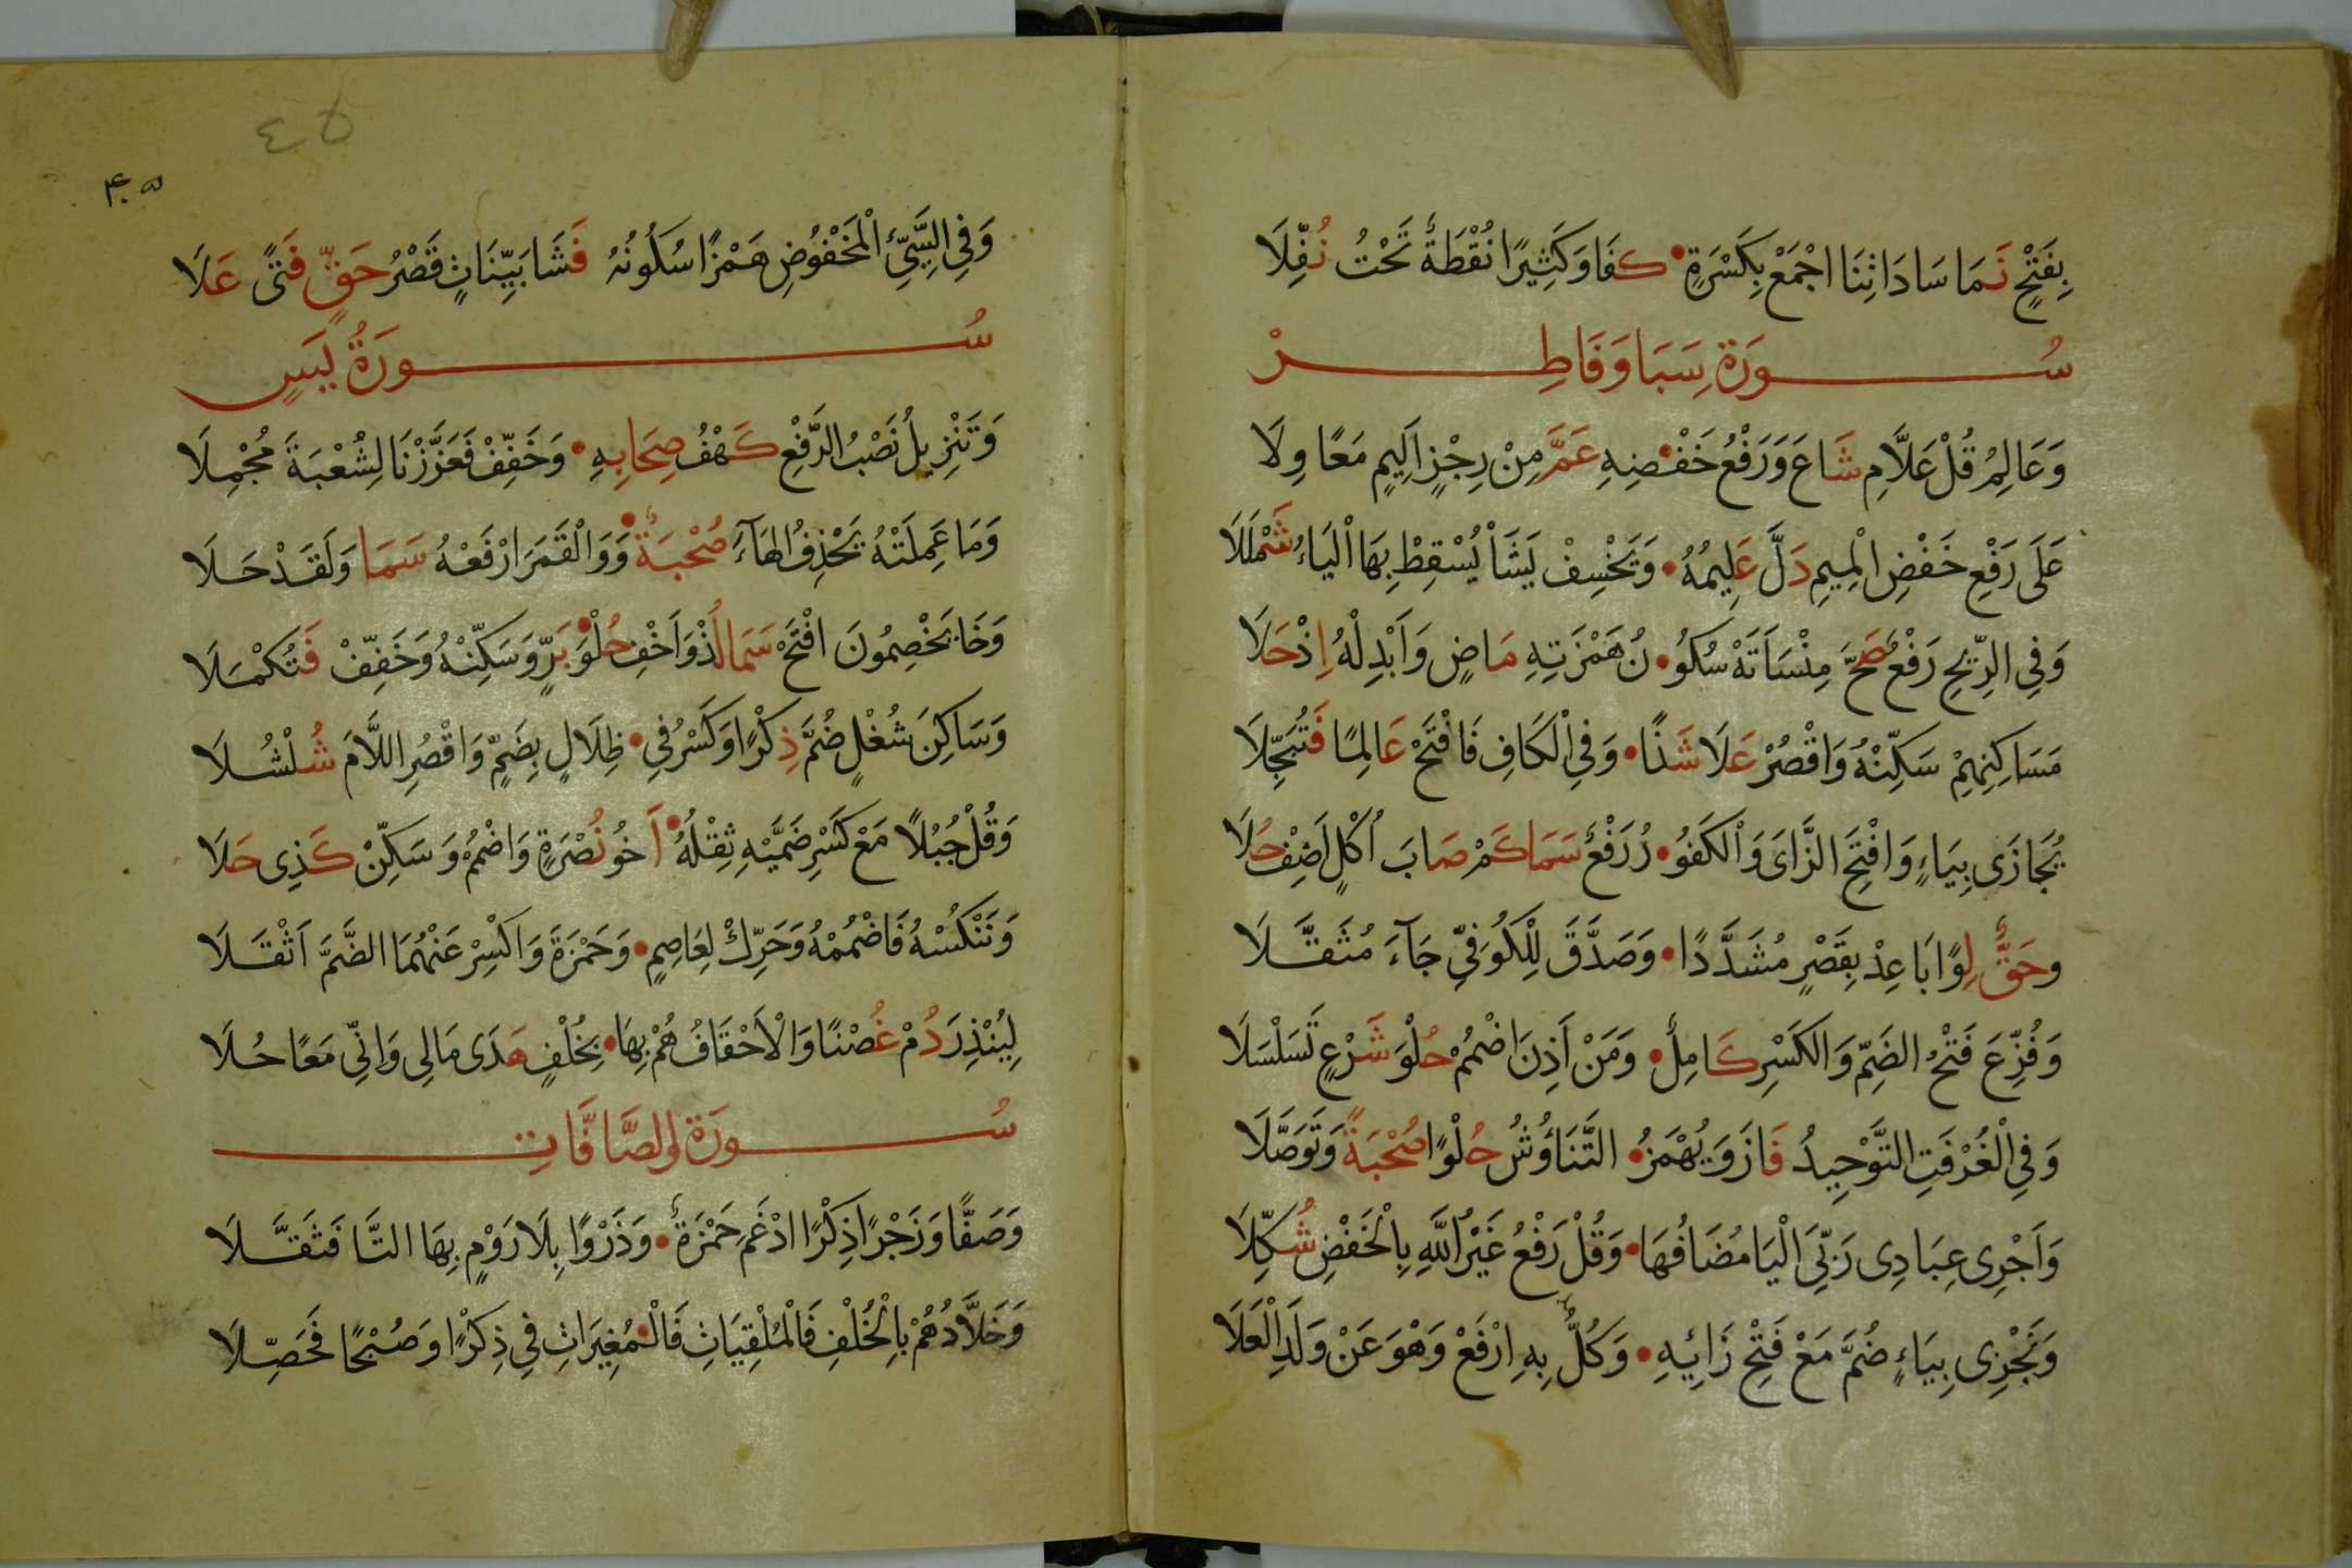 بِفَتْحٍ نَمَا سَادَاتِنَا اجْمَعْ بِكَسْرَةٍ • كَفَا وَكَثِيرًا نُقْطَةٌ تَحْتُ نُفِّلَا
سُورَة سَبَا وَفَاطِرْ
وَعَالِمُ قُلْ عَلَّامِ شَاعَ وَرَفْعُ خَفْضِهِ عَمَّ مِنْ رِجْزٍ اَلِيمٍ مَعًا وِلَا
عَلَى رَفْعِ خَفْضِ الْمِيمِ دَلَّ عَلِيمُهُ • وَنَخْسِفْ نَشَأْ نُسْقِطْ بِهَا الْيَاءُ شَمْلَلَا
وَفِي الرِّيحِ رَفْعٌ صَحَّ مِنْسَاَتَهْ سُكُو • نُ هَمْزَتِهِ مَاضٍ وَاَبْدِلْهُ اِذْ حَلَا
مَسَاكِنِهِمْ سَكِّنْهُ وَاقْصُرْ عَلَا شَذًا • وَفِي الْكَافِ فَافْتَحْ عَالِمًا فَتُبَجَّلَا
يُجَازَى بِيَاءٍ وَافْتَحِ الزَّاىَ وَالْكَفُو • رُ رَفْعٌ سَمَا كَمْ صَابَ اُكْلٍ اَضِفْ حُلَا
وحَقُّ لِوًا بَاعِدْ بِقَصْرٍ مُشَدَّدًا • وَصَدَّقَ لِلْكُوفِيِّ جَآءَ مُثَقَّلَا
وَفُزِّعَ فَتْحُ الضَّمِّ وَالكَسْرِ كَامِلٌ • وَمَنْ اَذِنَ اضْمُمْ حُلْوَ شَرْعٍ تَسَلْسَلَا
وَفِي الْغُرْفَتِ التَّوْحِيدُ فَازَ وَيُهْمَزُ • التَّنَاؤُشُ حُلْوًا صُحْبَةً وَتَوَصَّلَا
وَاَجْرِى عِبَادِى رَبِّيَ الْيَا مُضَافُهَا • وَقُلْ رَفْعُ غَيْرُ اللَّهِ بِالْخَفْضِ شُكِّلَا
وَنَجْزِى بِيَاءٍ ضُمَّ مَعْ فَتْحِ زَايِهِ • وَكُلُّ بِهِ ارْفَعْ وَهْوَ عَنْ وَلَدِ الْعَلَا
٤٥
وَفِي السَّيِّئِ الْمَخْفُوضِ هَمْزًا سُكُونُهُ فَشَا بَيِّنَاتٍ قَصْرُ حَقٍّ فَتًى عَلَا
سُورَةُ يَس
وَتَنْزِيلُ نَصْبُ الرَّفْعِ كَهْفُ صِحَابِهِ • وَخَفِّفْ فَعَزَّزْنَا لِشُعْبَةَ مُجْمِلَا
وَمَا عَمِلَتْهُ يَحْذِفُ الْهَآءَ صُحْبَةٌ • وَوَالْقَمَرَ ارْفَعْهُ سَمَا وَلَقَدْ حَلَا
وَخَا يَخْصِمُونَ افْتَحْ سَمَا لُذْ وَاَخْفِ حُلْوَ • بَرٍّ وَسَكِّنْهُ وَخَفِّفْ فَتُكْمَلَا
وَسَاكِنَ شُغْلٍ ضُمَّ ذِكْرًا وَكَسْرُ فِي • ظِلَالٍ بِضَمٍّ وَاقْصُرِ اللَّامَ شُلْشُلَا
وَقُلْ جُبُلًا مَعْ كَسْرِ ضَمَّيْهِ ثِقْلُهُ • اَخُو نُصْرَةٍ وَاضْمُمْ وَسَكِّنْ كَذِى حَلَا
وَنَنْكُسْهُ فَاضْمُمْهُ وَحَرِّكْ لِعَاصِمٍ • وَحَمْزَةَ وَاكْسِرْ عَنْهُمَا الضَّمَّ اَثْقَلَا
لِيُنْذِرَ دُمْ غُصْنًا وَالْاَحْقَافُ هُمْ بِهَا • بِخُلْفٍ هَدَى مَالِي وَاِنِّي مَعًا حُلَا
سُورَة والصَّافَّاتِ
وَصَفًّا وَزَجْرًا ذِكْرًا ادْغَمَ حَمْزَةٌ • وَذَرْوًا بِلَا رَوْمٍ بِهَا التَّا فَثَقَّلَا
وَخَلَّادُهُمْ بِالْخُلْفِ فَالْمُلْقِيَاتِ فَالْمُغِيرَاتِ فِي ذِكْرًا وَصُبْحًا فَحَصِّلَا